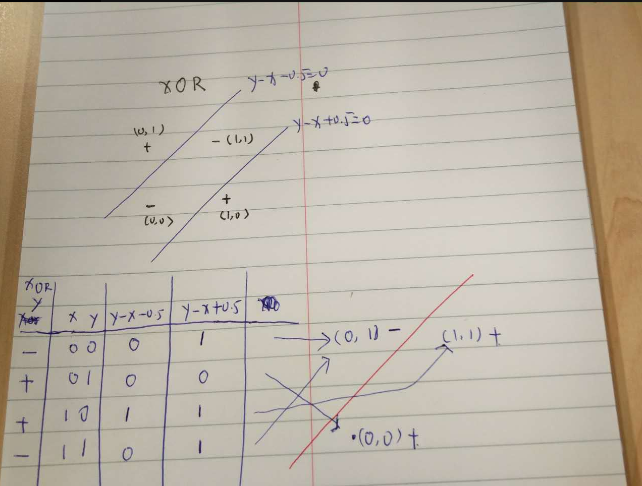 XOR
y-x-0.5=0
y-x+0.5=0
(0,1)
+
- (1,1)
-
(0,0)
+
(1,0)
XOR
y
x y
y-x-0.5
y-x+0.5
- 0 0 0 1 (0,1) -
+ 0 1 0 0 (1,1) +
+ 1 0 1 1 (0,0) +
- 1 1 0 1